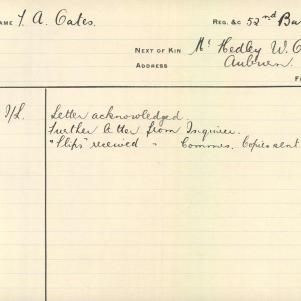 NAME T. A. Oates. REG. &C 52nd Ba
NEXT OF KIN Mr Hedley W. O
ADDRESS Auburn.
I/L. Letter acknowledged.
Further letter from Inquirer.
"Slips" received " Commrs. Copies sent